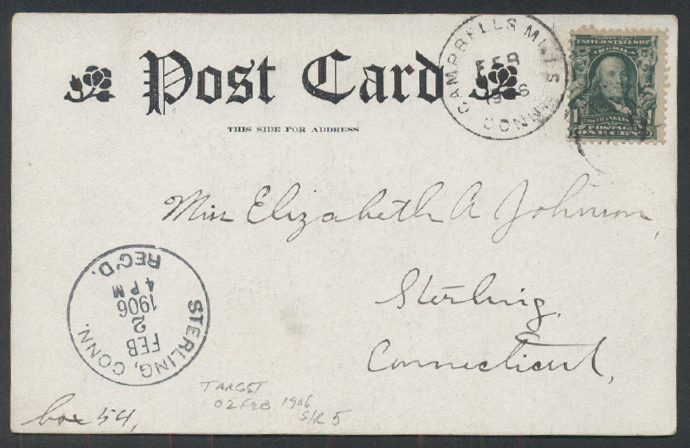 Post Card
THIS SIDE FOR ADDRESS
CAMPBELLS MILLS
FEB
CONN
UNITED STATES OF
AMERICA
1 1
POSTAGE
ONE CENT
Miss Elizabeth A Johnson,
Sterling.
Connecticut,
STERLING, CONN.
FEB
2
1906
4 PM
REC'D.
TARGET
02 FEB 1906
S/R 5
box 54,